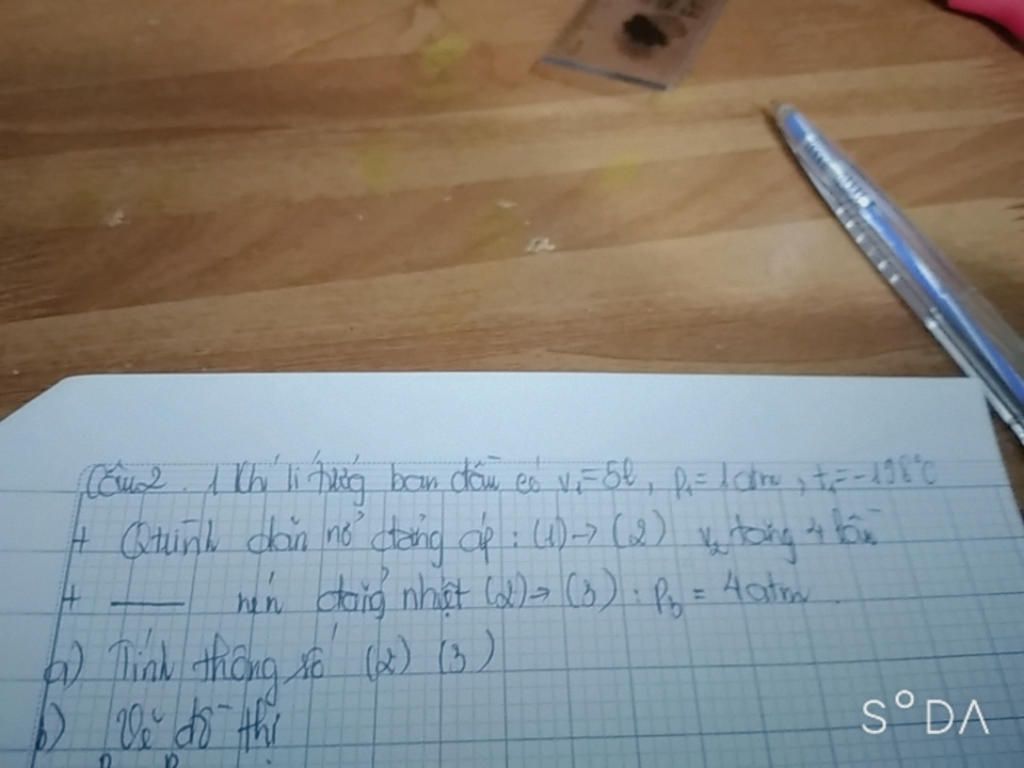 Câu2. 1 khí lí tưởng ban đầu có V₁=5l, P₁=1atm, t₁=-198°C
+ Qtrình dãn nở đẳng áp : (1)→(2) V₂ tăng 4 lần
+ —— nén đẳng nhiệt (2)→(3) : P₃ = 4atm.
a) Tính thông số (2) (3)
b) Vẽ đồ thị
S°DA